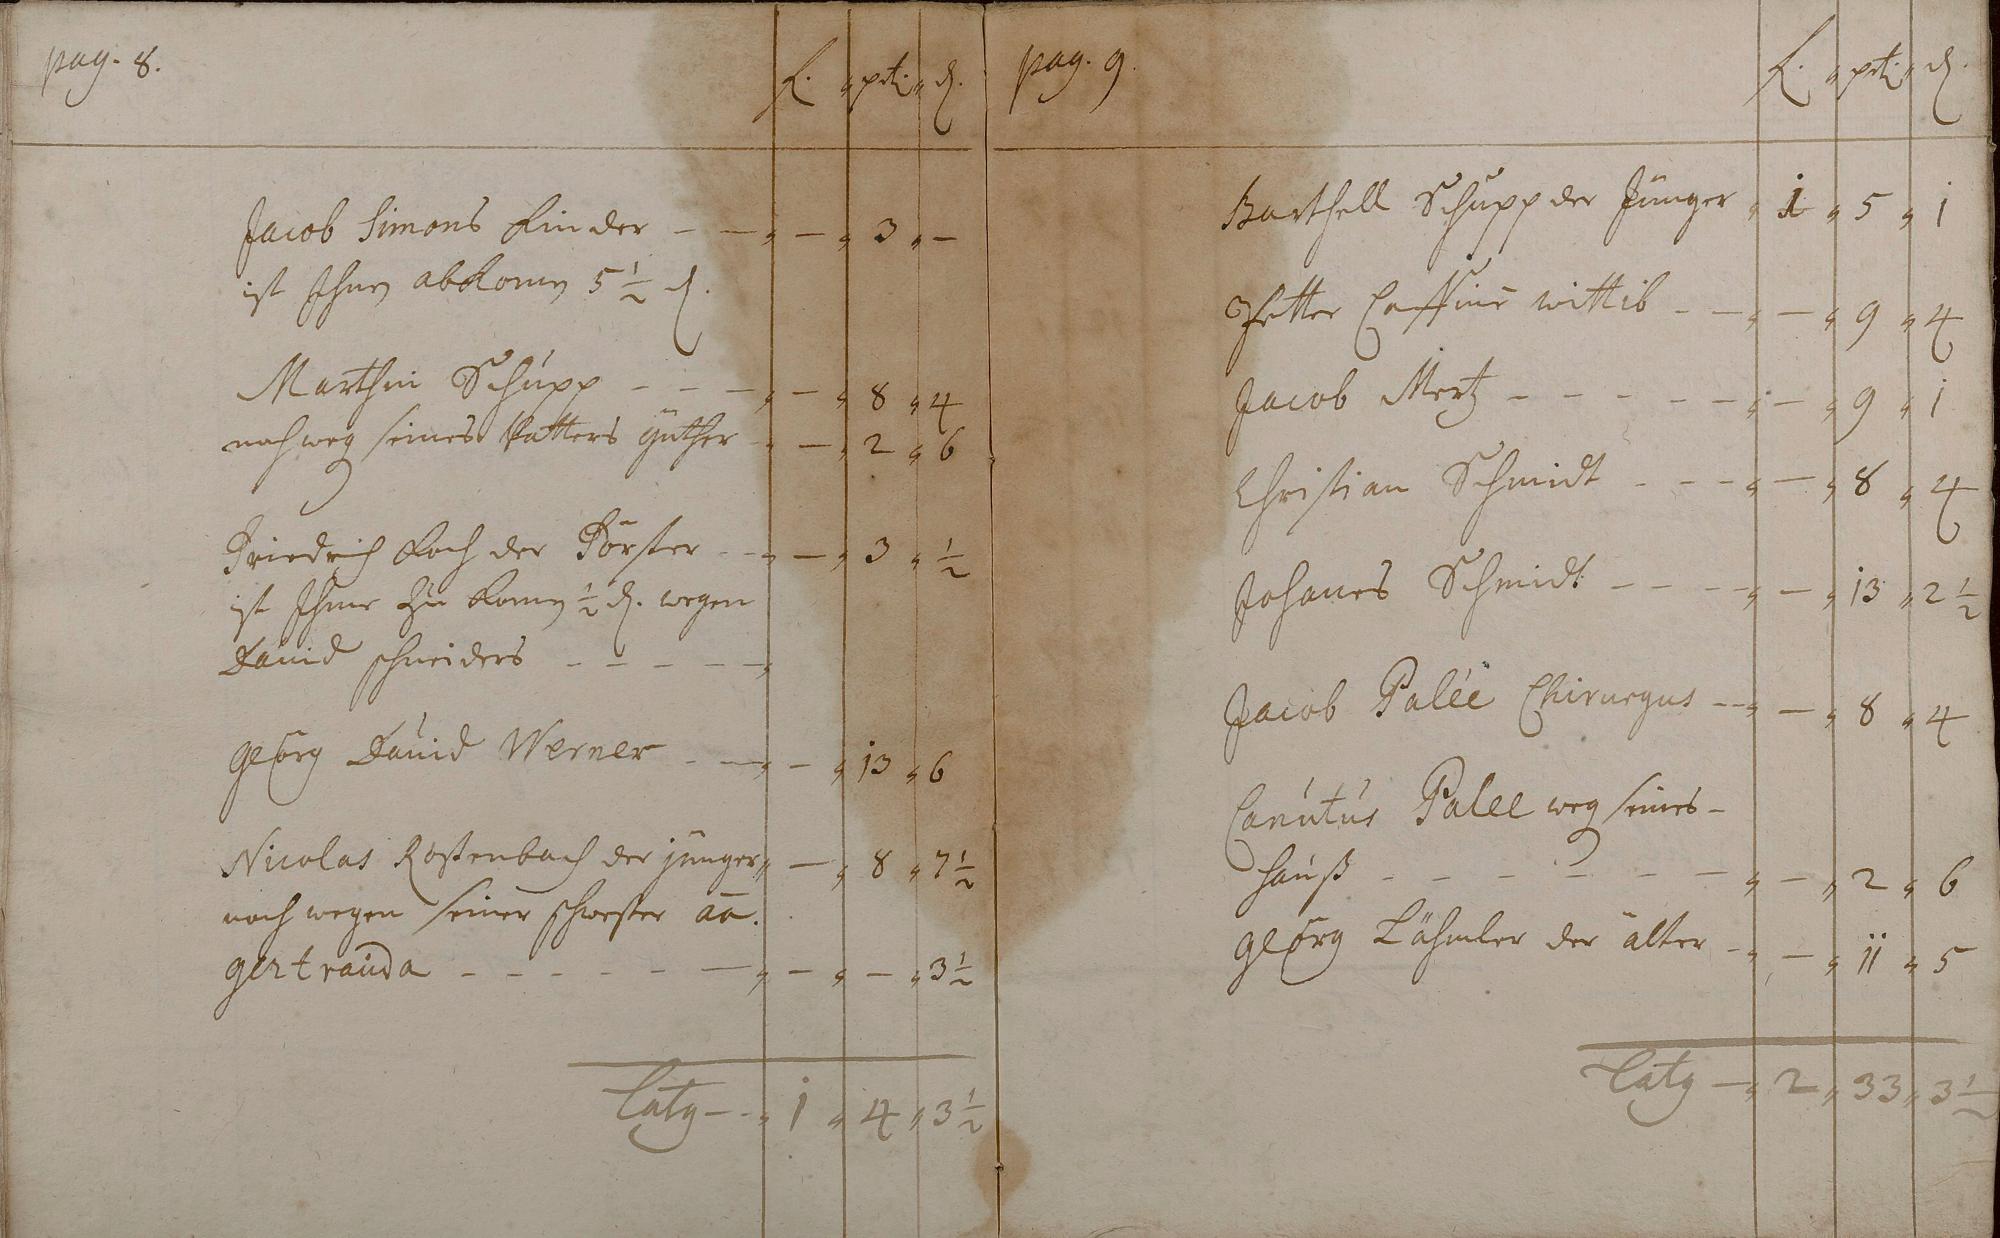 pag. 8.
f. „ prt. „ d.
Jacob Simons Kinder - - „ - „ 3 „ -
ist Ihnen abkomen 5 1/2 d.
Marthin Schupp - - - „ - „ 8 „ 4
noch weg seines Vatters güther „ - „ 2 „ 6
Friedrich Koch der Förster - - „ - „ 3 „ 1/2
ist Ihme zu komen 1/2 d. wegen
David schneiders - - - - - „
Georg David Werner - - „ - „ 13 „ 6
Nicolas Rostenbach der jünger „ - „ 8 „ 7 1/2
noch wegen seiner schwester aa.
gertrauda - - - - - - - „ - „ - „ 3 1/2
Latg - - „ 1 „ 4 „ 3 1/2
pag. 9.
f. „ prt. „ d.
Barthell Schupp der Jünger „ 1 „ 5 „ 1
wittib - - „ - „ 9 „ 4
Jacob Mertz - - - - - - „ - „ 9 „ 1
Christian Schmidt - - - - „ - „ 8 „ 4
Johanes Schmidt - - - - „ - „ 13 „ 2 1/2
Jacob Palée Chirurgus - - „ - „ 8 „ 4
Canutus Palee weg seines -
hauß - - - - - - - „ - „ 2 „ 6
Georg Lähmler der älter - „ - „ 11 „ 5
Latg - „ 2 „ 33 „ 3 1/2